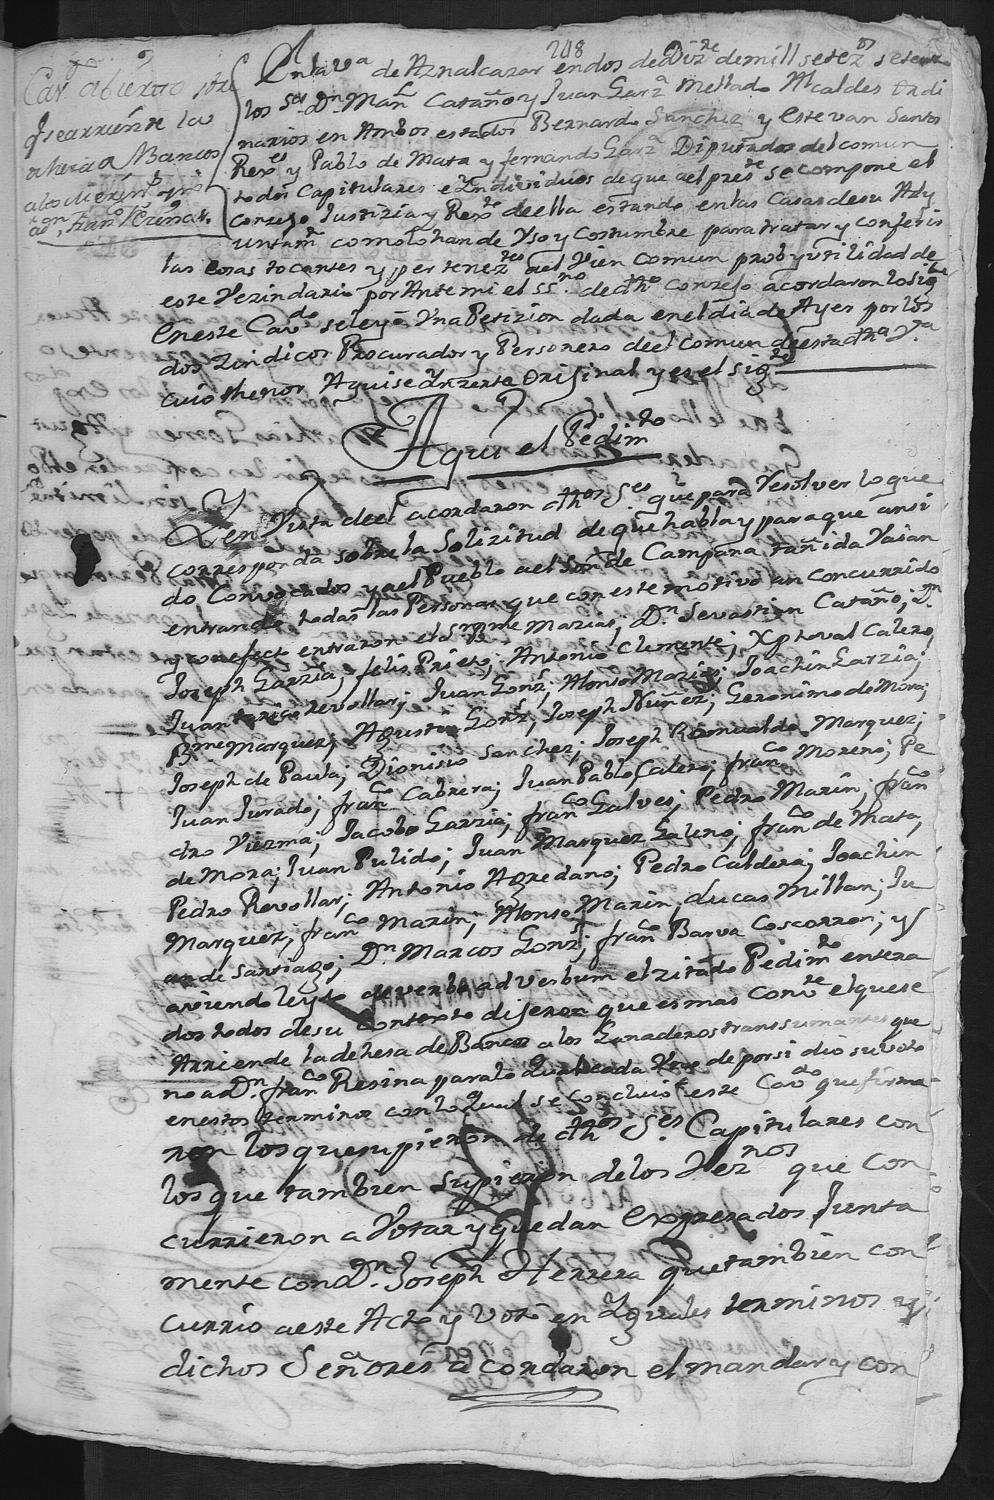 248
Cav.do abierto sre
q se arriende la
dehesa de Bancos
En la va de Aznalcazar en dos de Dizre de mill setezos setenta
los Ses Dn Manl Cataño y Juan Garza Mellado Alcaldes Ordi
narios en Ambos estados Bernardo Sanchez y Estevan Santos
Rexes y Pablo de Mata y fernando Garza Diputados del comun
todos Capitulares e Yndividuos de que al preste se compone el
Conzejo Justizia y Rexto de ella estando en las Casas de su Ady
untamto como lo han de Vso y Costumbre para tratar y conferir
las cosas tocantes y perteneztes al Vien Comun prob y vtilidad de
este Vezindario por Ante mi el Ssno de dho Conzejo acordaron lo sigte
En este Cavdo se leyó Vna Petizion dada en el dia de Ayer por los
dos Zindicos Procurador y Personero deel Comun de esta dha Va
cuio thenor Aqui se Ynzerta Original y es el sigte
Aqui el Pedimto
Y en Vista deel acordaron dhos Ses que para Resolver lo que
corresponda sobre la Solizitud de que habla y para que ansi
do Convocados y a el Pueblo a el Son de Campana tañida Vaian
entrando todas las Personas que con este motivo an Concurrido
y con efecto entraron el Sr Bme Marias; Dn Sevastian Cataño; Dn
Joseph Garzia; felis Prieto; Antonio Clemente; Xptoval Calero;
Juan Revollar; Juan Gonz; Alonso Marin; Joachin Garzia;
Bme Marquez; Agustin Gonz; Joseph Nuñez; Geronimo de Mora;
Joseph de Paula; Dionisio Sanchez; Joseph Romualdo Marquez;
Juan Jurado; franco Cabrera; Juan Pablo Calero; franco Moreno; Pe
dro Viezma; Jacobo Garzia; franco Galves; Pedro Marin; franco
de Mora; Juan Pulido; Juan Marquez Galeno; franco de Mata,
Pedro Revollar; Antonio Agredano; Pedro Caldera; Joachin
Marquez; franco Marin; Alonso Marin; Lucas Millan; Ju
an de Santiago; Dn Marcos Gonz; franco Barva Coscorron; y
aviendo leydo de verbo ad verbum el zitado Pedimto entera
dos todos de su Contexto dijeron que es mas Conte el que se
Arriende la dehesa de Bancos a los Ganaderos transsumantes que
no a Dn franco Resina para lo qual cada Vno de por si dio su voto
en estos terminos con lo qual se concluio este Cavdo que firma-
ron los que supieron de dhos Ses Capitulares con
los que tambien supieron de los Veznos que con-
currieron a Votar y quedan expresados Junta
mente con Dn Joseph Herrera que tambien con-
currio a este Acto y Votó en Yguales terminos y
dichos Señores acordaron el mandar y con